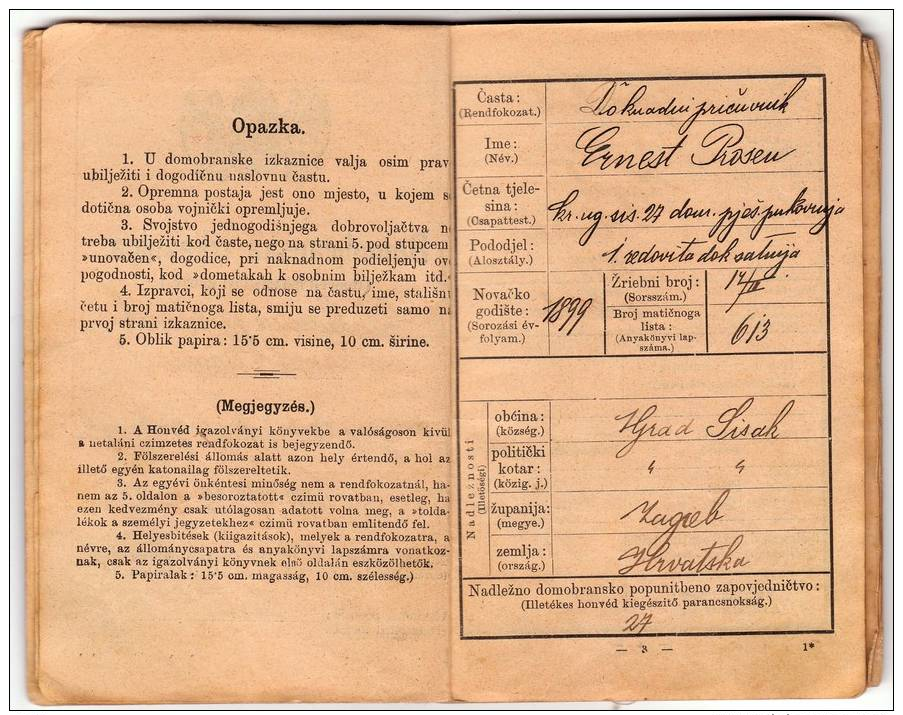 Opazka.
1. U domobranske izkaznice valja osim prav
ubilježiti i dogodičnu naslovnu častu.
2. Opremna postaja jest ono mjesto, u kojem s
dotična osoba vojnički opremljuje.
3. Svojstvo jednogodišnjega dobrovoljačtva n
treba ubilježiti kod časte, nego na strani 5. pod stupcem
»unovačen«, dogodice, pri naknadnom podieljenju ov
pogodnosti, kod »dometakah k osobnim bilježkam itd.
4. Izpravci, koji se odnose na častu, ime, stališn
četu i broj matičnoga lista, smiju se preduzeti samo n
prvoj strani izkaznice.
5. Oblik papira: 15·5 cm. visine, 10 cm. širine.
(Megjegyzés.)
1. A Honvéd igazolványi könyvekbe a valóságoson kivül
a netaláni czimzetes rendfokozat is bejegyzendő.
2. Fölszerelési állomás alatt azon hely értendő, a hol az
illető egyén katonailag fölszereltetik.
3. Az egyévi önkéntesi minőség nem a rendfokozatnál, ha-
nem az 5. oldalon a »besoroztatott« czimü rovatban, esetleg, ha
ezen kedvezmény csak utólagosan adatott volna meg, a »tolda-
lékok a személyi jegyzetekhez« czimü rovatban emlitendő fel.
4. Helyesbitések (kiigazitások), melyek a rendfokozatra, a
névre, az állománycsapatra és anyakönyvi lapszámra vonatkoz-
nak, csak az igazolványi könyvnek első oldalán eszközölhetők.
5. Papiralak: 15·5 cm. magasság, 10 cm. szélesség.)
Časta: (Rendfokozat.) Doknadni pričuvnik
Ime: (Név.) Ernest Prosen
Četna tjele-
sina: (Csapattest.) kr. ug. sis. 27 dom. pješ. pukovnija
Pododjel: (Alosztály.) 1. redovita dok satnija
Novačko
godište:
(Sorozási év-
folyam.)
1899
Žriebni broj:
(Sorsszám.)
14/II
Broj matičnoga
lista:
(Anyakönyvi lap-
száma.)
613
Nadležnosti
(Illetőségi)
občina:
(község.)
Grad Sisak
politički
kotar:
(közig. j.)
" "
županija:
(megye.)
Zagreb
zemlja:
(ország.)
Hrvatska
Nadležno domobransko popunitbeno zapovjedničtvo:
(Illetékes honvéd kiegészitő parancsnokság.)
27
— 3 —
1*